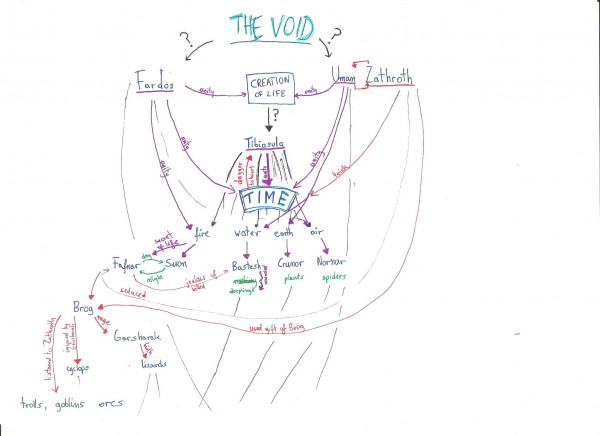 THE VOID
?
?
Fardos
unity
CREATION
OF LIFE
unity
Uman
Zathroth
?
Tibiasula
unity
unity
dagger
unity
trick
TIME
fire
water
earth
air
secret of life
Fafnar
day
night
Suon
jealous of
killed
Bastesh
deeplings
Crunor
plants
Nornur
spiders
seduced
Brog
used gift of Brog
rage
Garsharak
listened to Zathroth
inspired by
cyclops
lizards
trolls, goblins orcs